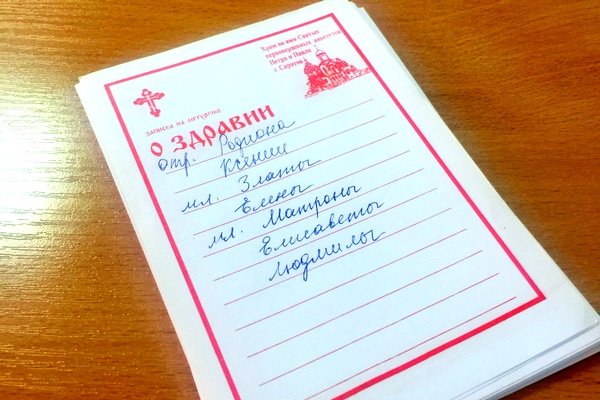 Храм во имя Святых
первоверховных апостолов
Петра и Павла
г. Саратов
ЗАПИСКА НА ЛИТУРГИЮ
О ЗДРАВИИ
отр. Родиона
Ксении
мл. Златы
Елены
мл. Матроны
Елисаветы
Людмилы